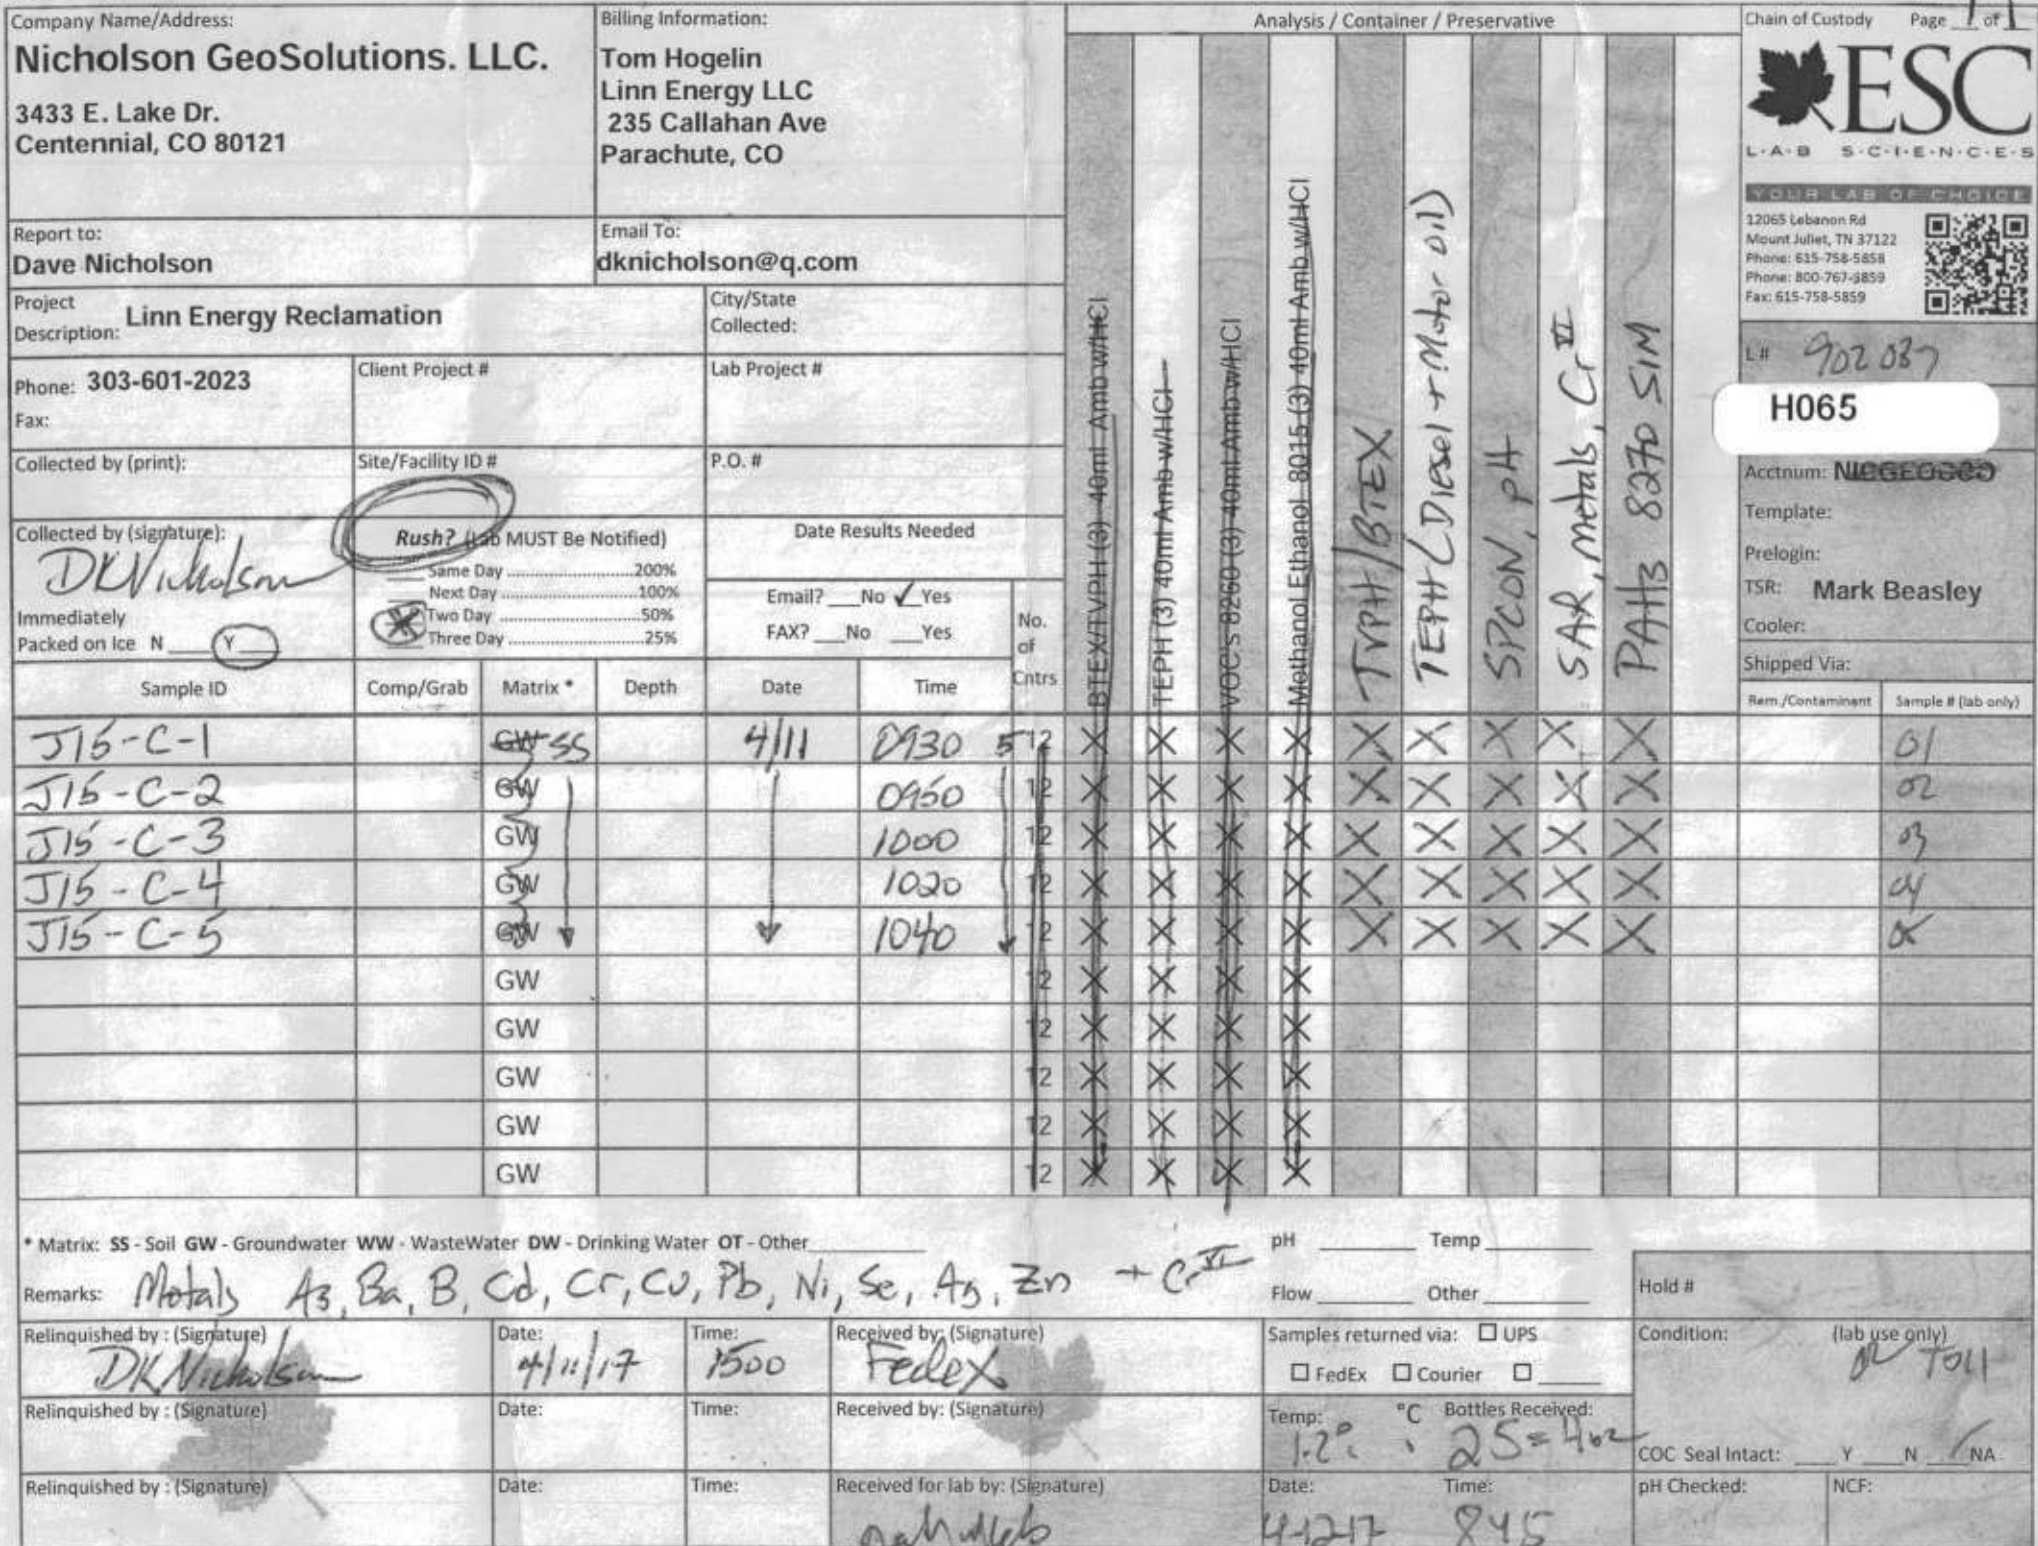 Company Name/Address:
Nicholson GeoSolutions. LLC.
3433 E. Lake Dr.
Centennial, CO 80121
Billing Information:
Tom Hogelin
Linn Energy LLC
235 Callahan Ave
Parachute, CO
Analysis / Container / Preservative
Chain of Custody Page 1 of 1
ESC
L·A·B S·C·I·E·N·C·E·S
YOUR LAB OF CHOICE
12065 Lebanon Rd
Mount Juliet, TN 37122
Phone: 615-758-5858
Phone: 800-767-5859
Fax: 615-758-5859
Report to:
Dave Nicholson
Email To:
dknicholson@q.com
Project
Description: Linn Energy Reclamation
City/State
Collected:
Phone: 303-601-2023
Fax:
Client Project #
Lab Project #
Collected by (print):
Site/Facility ID #
P.O. #
Collected by (signature):
DKNicholson
Immediately
Packed on Ice N Y
Rush? (Lab MUST Be Notified)
Same Day 200%
Next Day 100%
Two Day 50%
Three Day 25%
Date Results Needed
Email? No ✓ Yes
FAX? No Yes
No.
of
Cntrs
BTEX/TVPH (3) 40ml Amb w/HCl
TEPH (3) 40ml Amb w/HCl
VOC's 8260 (3) 40ml Amb w/HCl
Methanol Ethanol 8015 (3) 40ml Amb w/HCl
TVPH/BTEX
TEPH (Diesel + Motor oil)
SPCON, pH
SAR, metals, Cr VI
PAHs 8270 SIM
L# 902037
H065
Acctnum: NICGEOCCO
Template:
Prelogin:
TSR: Mark Beasley
Cooler:
Shipped Via:
Sample ID Comp/Grab Matrix * Depth Date Time Rem./Contaminant Sample # (lab only)
J15-C-1 GW SS 4/11 0930 5 12 X X X X X X X X X 01
J15-C-2 GW 0950 12 X X X X X X X X X 02
J15-C-3 GW 1000 12 X X X X X X X X X 03
J15-C-4 GW 1020 12 X X X X X X X X X 04
J15-C-5 GW 1040 12 X X X X X X X X X 05
GW 12 X X X X
GW 12 X X X X
GW 12 X X X X
GW 12 X X X X
GW 12 X X X X
* Matrix: SS - Soil GW - Groundwater WW - WasteWater DW - Drinking Water OT - Other
Remarks: Metals As, Ba, B, Cd, Cr, Cu, Pb, Ni, Se, Ag, Zn + Cr VI
pH Temp
Flow Other
Hold #
Relinquished by : (Signature)
DKNicholson
Date:
4/11/17
Time:
1500
Received by: (Signature)
Fedex
Samples returned via: ☐ UPS
☐ FedEx ☐ Courier ☐
Condition: (lab use only)
Relinquished by : (Signature)
Date:
Time:
Received by: (Signature)
Temp: °C Bottles Received:
1.2° 25=4oz
COC Seal Intact: Y N NA
Relinquished by : (Signature)
Date:
Time:
Received for lab by: (Signature)
Date:
4-12-17
Time:
845
pH Checked:
NCF: